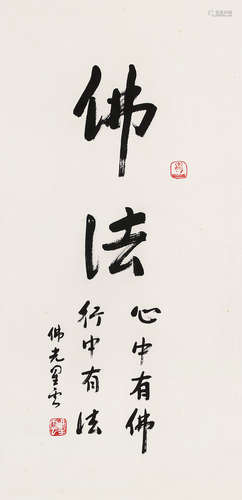 佛法
心中有佛
行中有法
佛光星雲